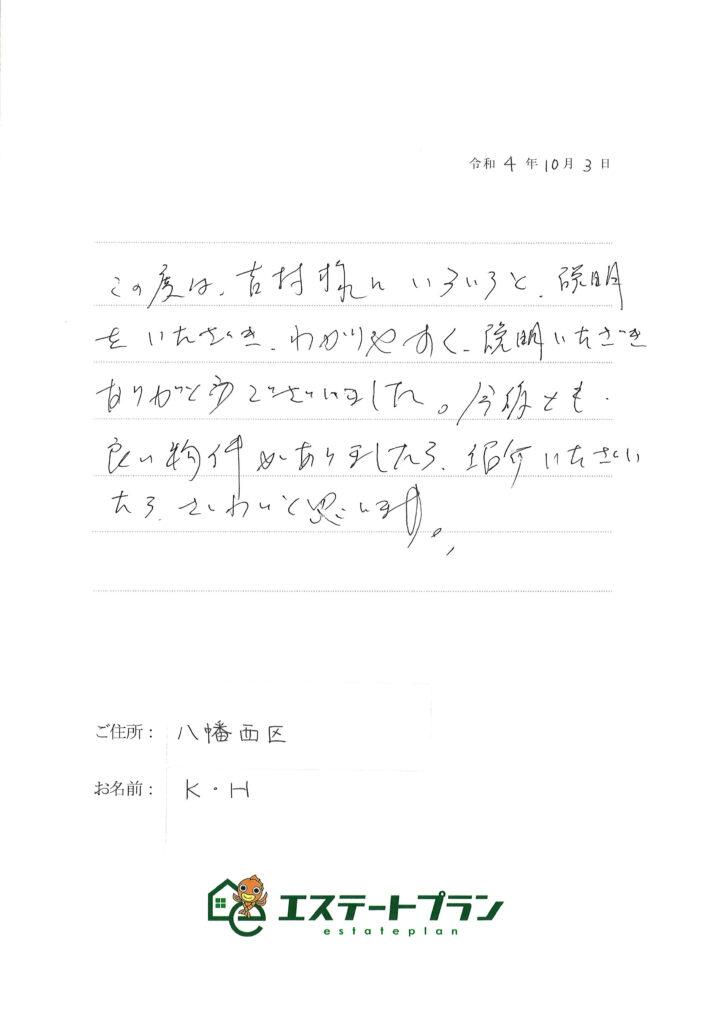 令和 4 年 10 月 3 日
この度は、吉村様に いろいろと、説明
をいただき、わかりやすく、説明いただき
ありがとうございました。今後とも、
良い物件がありましたら、紹介いただい
たら、さいわいと思います。
ご住所： 八幡西区
お名前： K・H
エステートプラン
estateplan